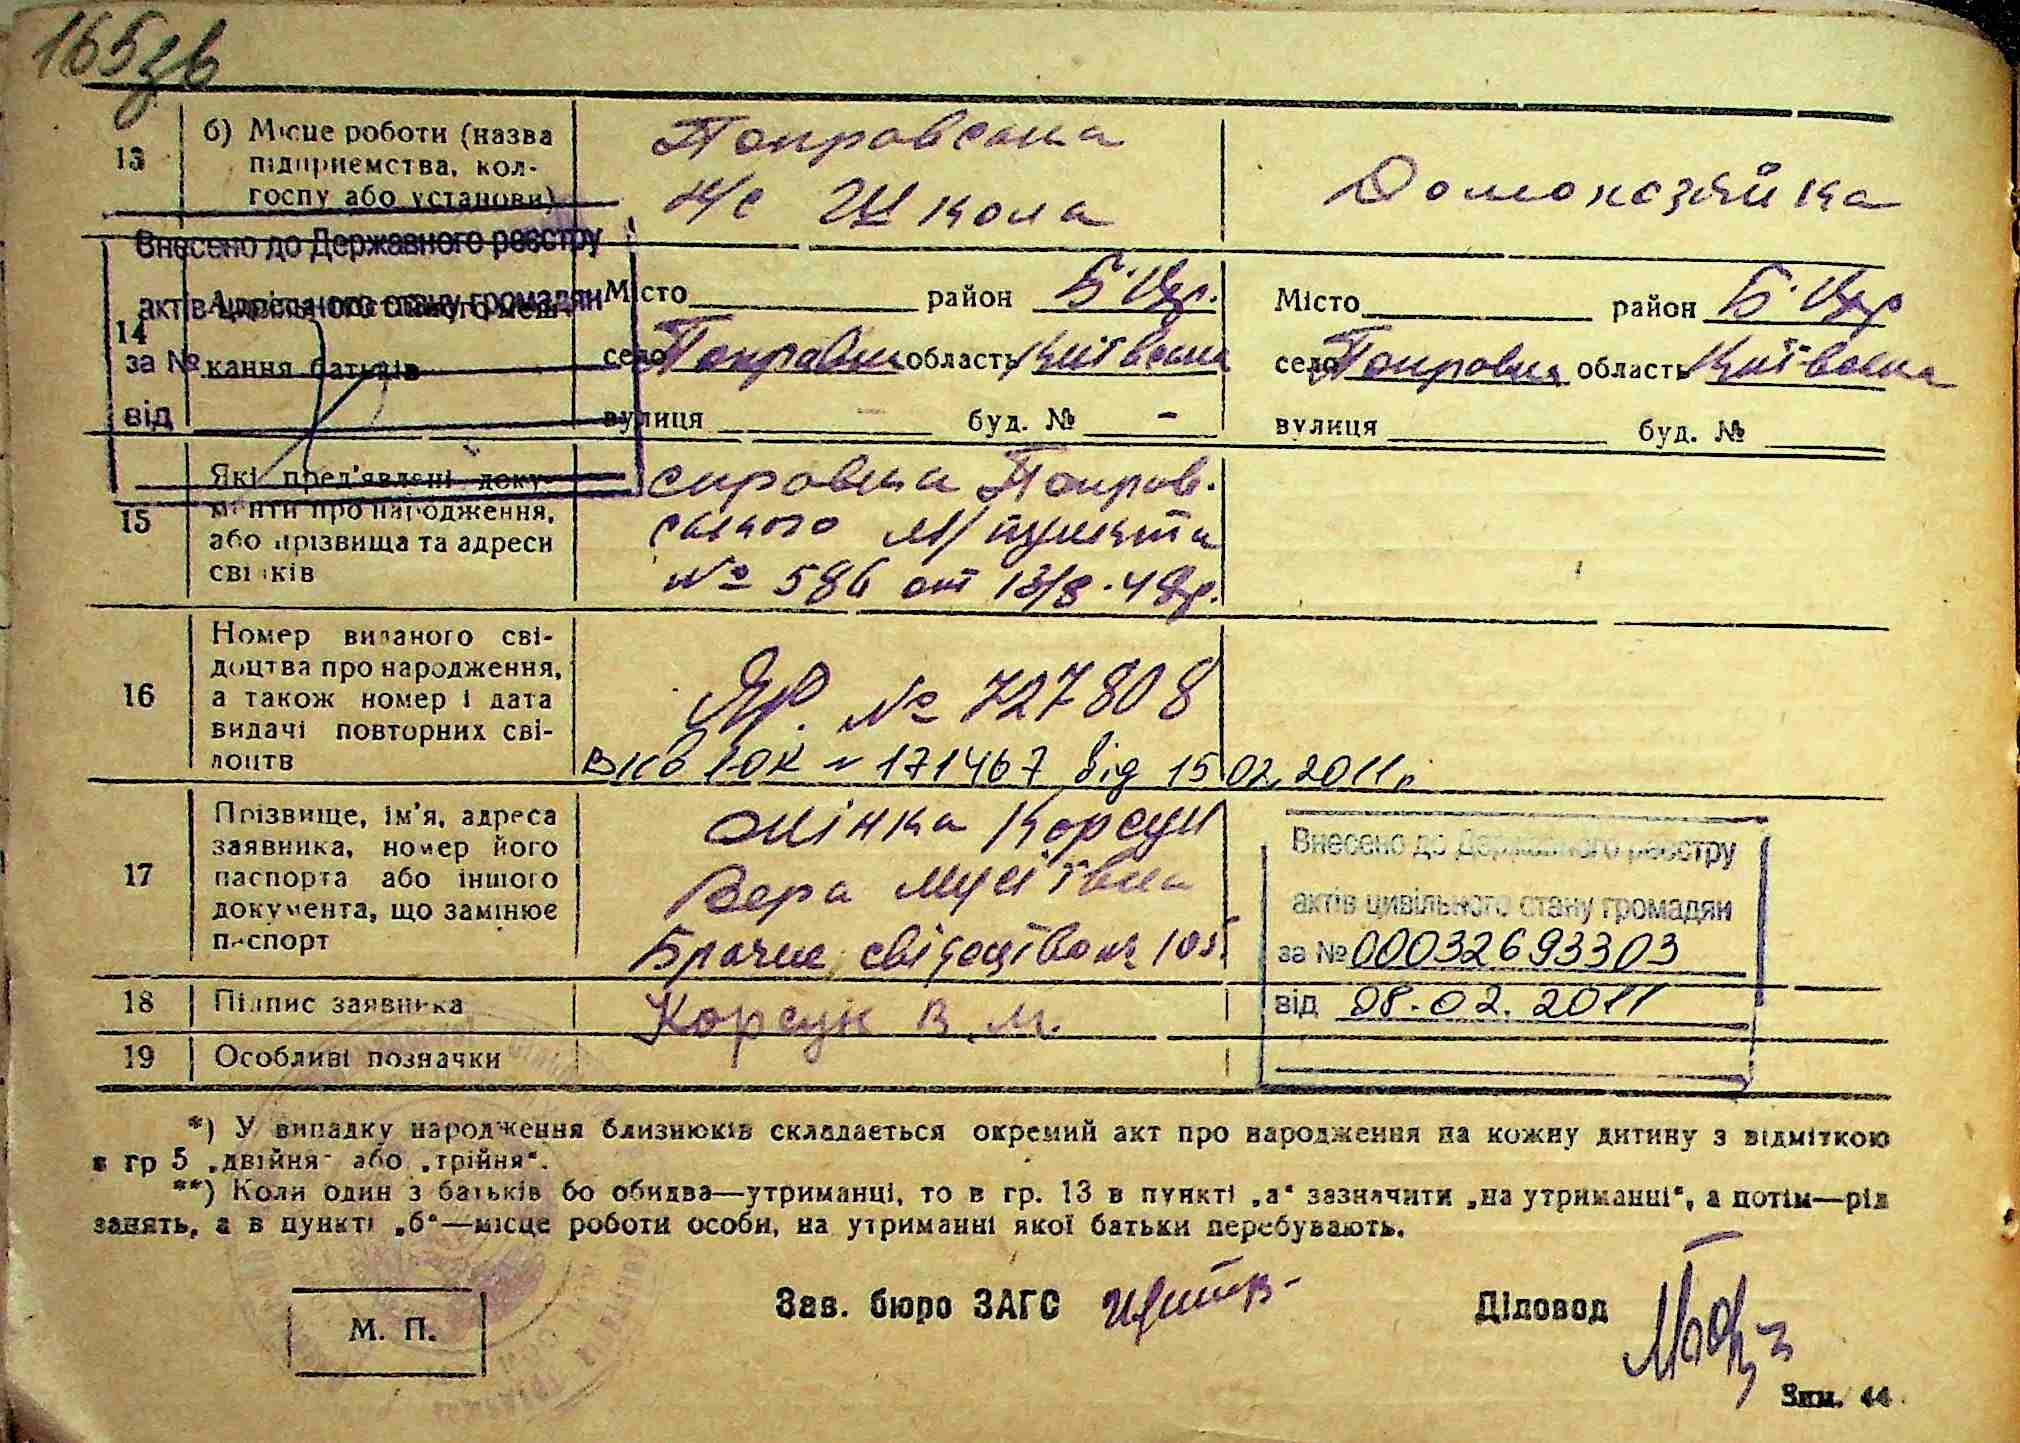 165зв
13 б) Місце роботи (назва підприємства, колгоспу або установи)
Покровська
н/с Школа
Домохазяйка
Внесено до Державного реєстру
актів цивільного стану громадян
за №
від
14
кання батьків
Місто район Б-Цер.
село Покровка область Київська
вулиця - буд. № -
Місто район Б-Цер
село Покровка область Київська
вулиця буд. №
15 Які пред'явлені документи про народження, або прізвища та адреси свідків
справка Покров.
ського м/пункта
№ 586 от 13/8-49р.
16 Номер виданого свідоцтва про народження, а також номер і дата видачі повторних свідоцтв
ЯР. № 727808
№ 171467 від 15.02.2011р
17 Прізвище, ім'я, адреса заявника, номер його паспорта або іншого документа, що замінює паспорт
жінка Корсун
Вера Мусіївна
Брачне свідоцтво № 105.
Внесено до Державного реєстру
актів цивільного стану громадян
за № 00032693303
від 08.02.2011
18 Підпис заявника
Корсун В. М.
19 Особливі позначки
*) У випадку народження близнюків складається окремий акт про народження на кожну дитину з відміткою
в гр 5 „двійня" або „трійня".
**) Коли один з батьків бо обидва—утриманці, то в гр. 13 в пункті „а" зазначити „на утриманні", а потім—рід
занять, а в пункті „б"—місце роботи особи, на утриманні якої батьки перебувають.
М. П.
Зав. бюро ЗАГС
Діловод
Зим. 44